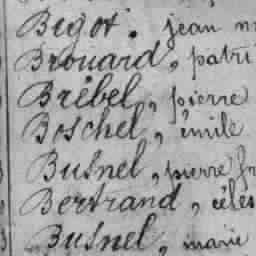 Begot. jean m
Brouard, patri
Brébel, pierre
Boschel, émile
Busnel, pierre fr
Bertrand, céles
Busnel, marie